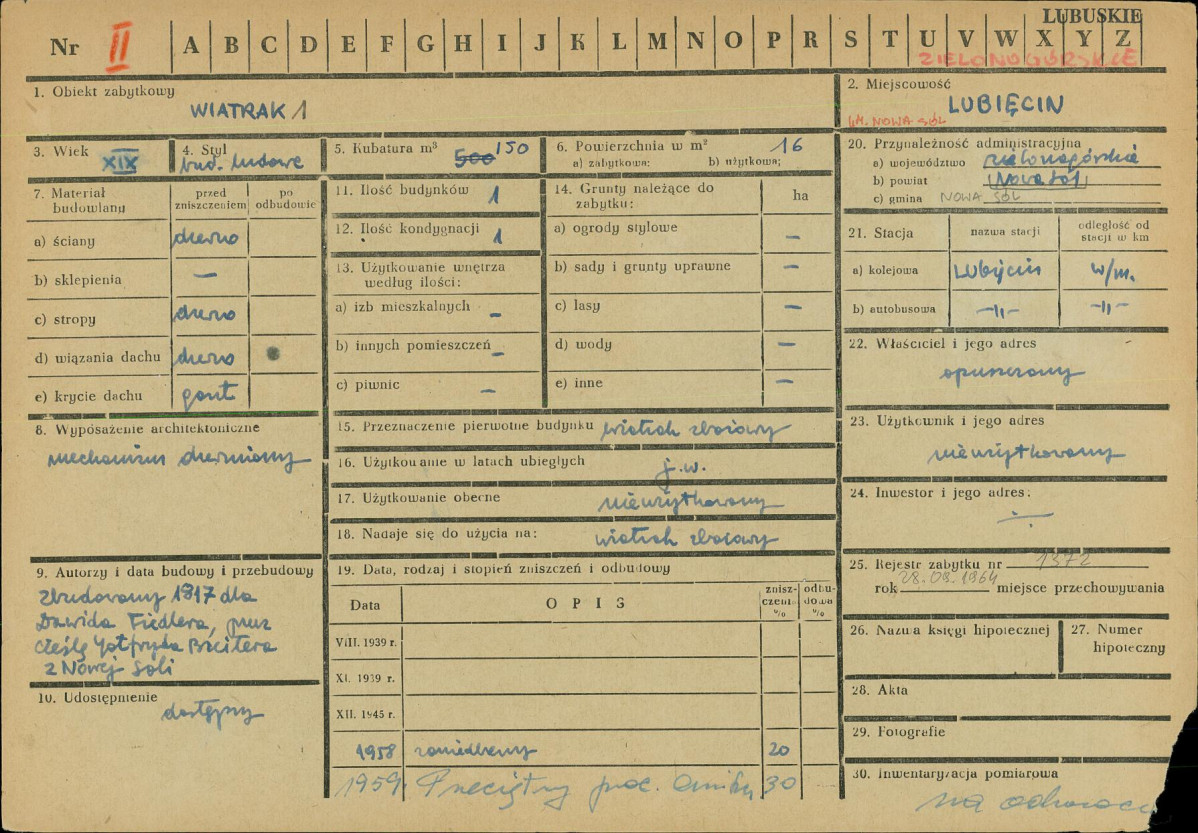 LUBUSKIE
Nr II A B C D E F G H I J K L M N O P R S T U V W X Y Z
ZIELONOGÓRSKIE
1. Obiekt zabytkowy
WIATRAK 1
2. Miejscowość
LUBIĘCIN
GM. NOWA SÓL
3. Wiek
XIX
4. Styl
bud. ludowe
5. Kubatura m³
500 150
6. Powierzchnia w m² 16
a) zabytkowa: b) użytkowa:
20. Przynależność administracyjna
a) województwo zielonogórskie
b) powiat Nowa Sól
c) gmina NOWA SÓL
7. Materiał budowlany
przed zniszczeniem
po odbudowie
a) ściany drewno
b) sklepienia —
c) stropy drewno
d) wiązania dachu drewno
e) krycie dachu gont
11. Ilość budynków 1
12. Ilość kondygnacji 1
13. Użytkowanie wnętrza
według ilości:
a) izb mieszkalnych –
b) innych pomieszczeń –
c) piwnic –
14. Grunty należące do
zabytku: ha
a) ogrody stylowe –
b) sady i grunty uprawne –
c) lasy –
d) wody –
e) inne –
21. Stacja
nazwa stacji
odległość od
stacji w km
a) kolejowa Lubięcin w/m.
b) autobusowa –"– –"–
22. Właściciel i jego adres
opuszczony
8. Wyposażenie architektoniczne
mechanizm drewniany
15. Przeznaczenie pierwotne budynku wiatrak zbożowy
16. Użytkowanie w latach ubiegłych j.w.
17. Użytkowanie obecne nieużytkowany
18. Nadaje się do użycia na: wiatrak zbożowy
23. Użytkownik i jego adres
nieużytkowany
24. Inwestor i jego adres:
9. Autorzy i data budowy i przebudowy
Zbudowany 1817 dla
Dawida Fiedlera, przez
cieślę
z Nowej Soli
10. Udostępnienie
dostępny
19. Data, rodzaj i stopień zniszczeń i odbudowy
Data
OPIS
znisz-
czenia
%
odbu-
dowa
%
VIII. 1939 r.
XI. 1939 r.
XII. 1945 r.
1958 zaniedbany 20
1959. Przeciętny proc. 30
25. Rejestr zabytku nr 1372
rok 28.09.1964 miejsce przechowywania
26. Nazwa księgi hipotecznej
27. Numer
hipoteczny
28. Akta
29. Fotografie
30. Inwentaryzacja pomiarowa
na odwrocie